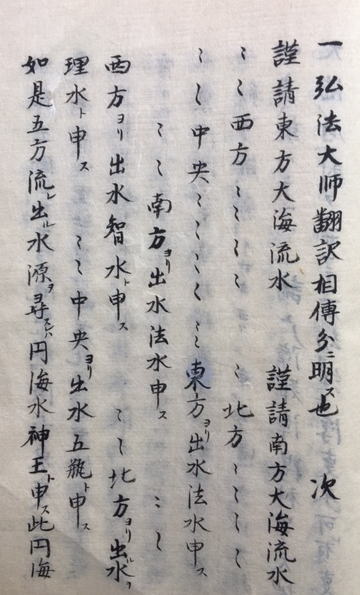 一弘法大師翻訳相傳分ニ明ス也 次
謹請東方大海流水 謹請南方大海流水
〻〻西方〻〻〻〻 〻北方〻〻〻〻
〻〻中央〻〻〻〻〻東方ヨリ出水法水申ス
〻〻南方ヨリ出水法水申ス 〻〻
西方ヨリ出水智水ト申ス 〻〻北方ヨリ出ル水ヲ
理水ト申ス 〻〻中央ヨリ出水五瓶ト申ス
如是五方流レ出ル水源ヲ尋ハ円海水神王ト申ス此円海